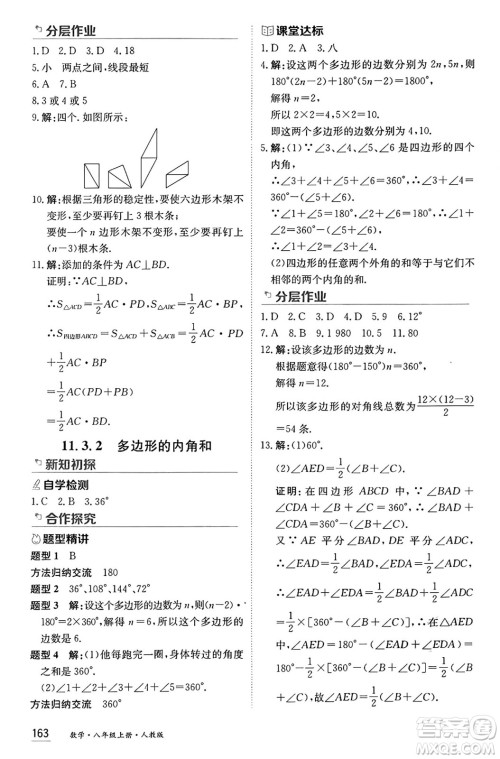 分层作业
1. D  2. D  3. D  4. 18
5. 小  两点之间,线段最短
6. A  7. B
8. 3 或 4 或 5
9. 解:四个. 如图:
10. 解:根据三角形的稳定性,要使六边形木架不变形,至少要再钉上 3 根木条.
要使一个 n 边形木架不变形,至少要再钉上
(n－3)根木条.
11. 解:添加的条件为 AC⊥BD.
证明:∵AC⊥BD,
∴S△ACD=1/2 AC·PD, S△ABC=1/2 AC·BP,
∴S四边形ABCD=S△ACD+S△ABC=1/2 AC·PD
+1/2 AC·BP
=1/2 AC(PD+PB)
=1/2 AC·BD.
11. 3. 2  多边形的内角和
新知初探
自学检测
1. C  2. B  3. 36°
合作探究
题型精讲
题型 1  B
方法归纳交流  180
题型 2  36°、108°、144°、72°
题型 3  解:设这个多边形的边数为 n,则(n－2)·
180°=2×360°,解得 n=6. 所以这个多边形的
边数是 6.
题型 4  解:(1)他每跑完一圈,身体转过的角度
之和是 360°.
(2)∠1+∠2+∠3+∠4+∠5=360°.
方法归纳交流  360°
163  数学·八年级上册·人教版
课堂达标
1. D  2. A  3. 八
4. 解:设这两个多边形的边数分别为 2n,5n,则
180°(2n－2)+180°(5n－2)=1 800°,
解得 n=2,
所以 2n=2×2=4,5n=5×2=10.
即这两个多边形的边数分别为 4 和 10.
5. 解:(1)∵∠3、∠4、∠5、∠6 是四边形的四个
内角,
∴∠3+∠4+∠5+∠6=360°,
∴∠3+∠4=360°－(∠5+∠6).
∵∠1+∠5=180°,∠2+∠6=180°,
∴∠1+∠2=360°－(∠5+∠6),
∴∠1+∠2=∠3+∠4.
(2)四边形的任意两个外角的和等于与它们不
相邻的两个内角的和.
分层作业
1. D  2. D  3. A  4. D  5. 9  6. 12°
7. A  8. B  9. 1 980  10. 5  11. 80
12. 解:设该多边形的边数为 n.
根据题意得(180°－150°)n=360°.
解得 n=12.
所以该多边形的对角线总数为 12×(12－3)/2
=54(条).
13. 解:(1)60°.
(2)∠AED=1/2(∠B+∠C).
证明:∵在四边形 ABCD 中,∠BAD+
∠CDA+∠B+∠C=360°,
∴∠BAD+∠CDA=360°－(∠B+∠C).
又∵AE 平分∠BAD,DE 平分∠CDA,
∴∠EAD=1/2∠BAD,∠EDA=1/2∠CDA,
∴∠EAD+∠EDA=1/2(∠BAD+∠CDA)=
1/2×[360°－(∠B+∠C)].
∴在△AED 中,∠AED=180°－(∠EAD+
∠EDA)=180°－1/2×[360°－(∠B+∠C)]
=1/2(∠B+∠C),
∴∠AED=1/2(∠B+∠C).